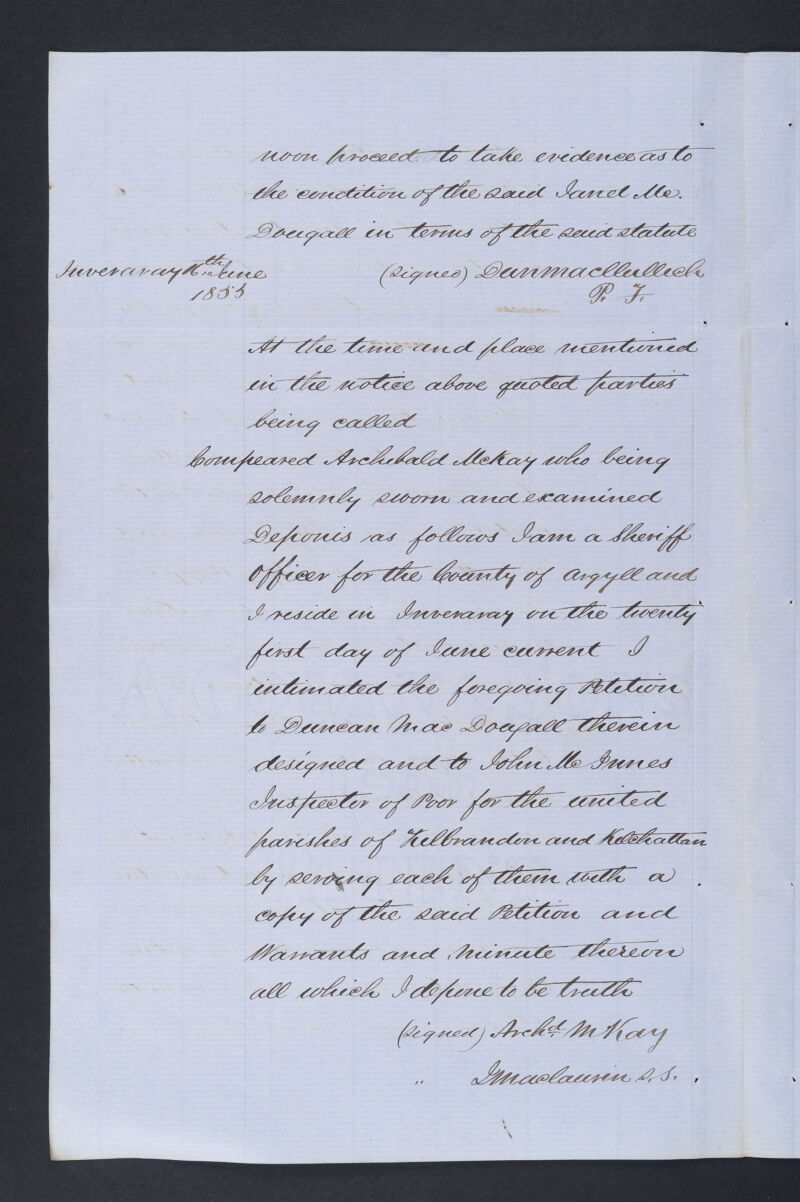 noon proceed to take evidence as to
the condition of the said Janet Mc.
Dougall in terms of the said statute
(signed) Dun macllullich
P. F.
Inveraray th June
1855
At the time and place mentioned
in the notice above quoted parties
being called
Compeared Archibald McKay who being
solemnly sworn and examined
Depones as follows I am a Sheriff
Officer for the County of Argyll and
I reside in Inveraray on the twenty
first day of June current I
intimated the foregoing Petition
to Duncan Mac Dougall therein
designed and to John Mc Innes
Inspector of Poor for the united
parishes of Kilbrandon and Kilchattan
by serving each of them with a
copy of the said Petition and
Warrants and Minute thereon
all which I depone to be truth
(signed) Archd. McKay
" J Maclaurin S.S.